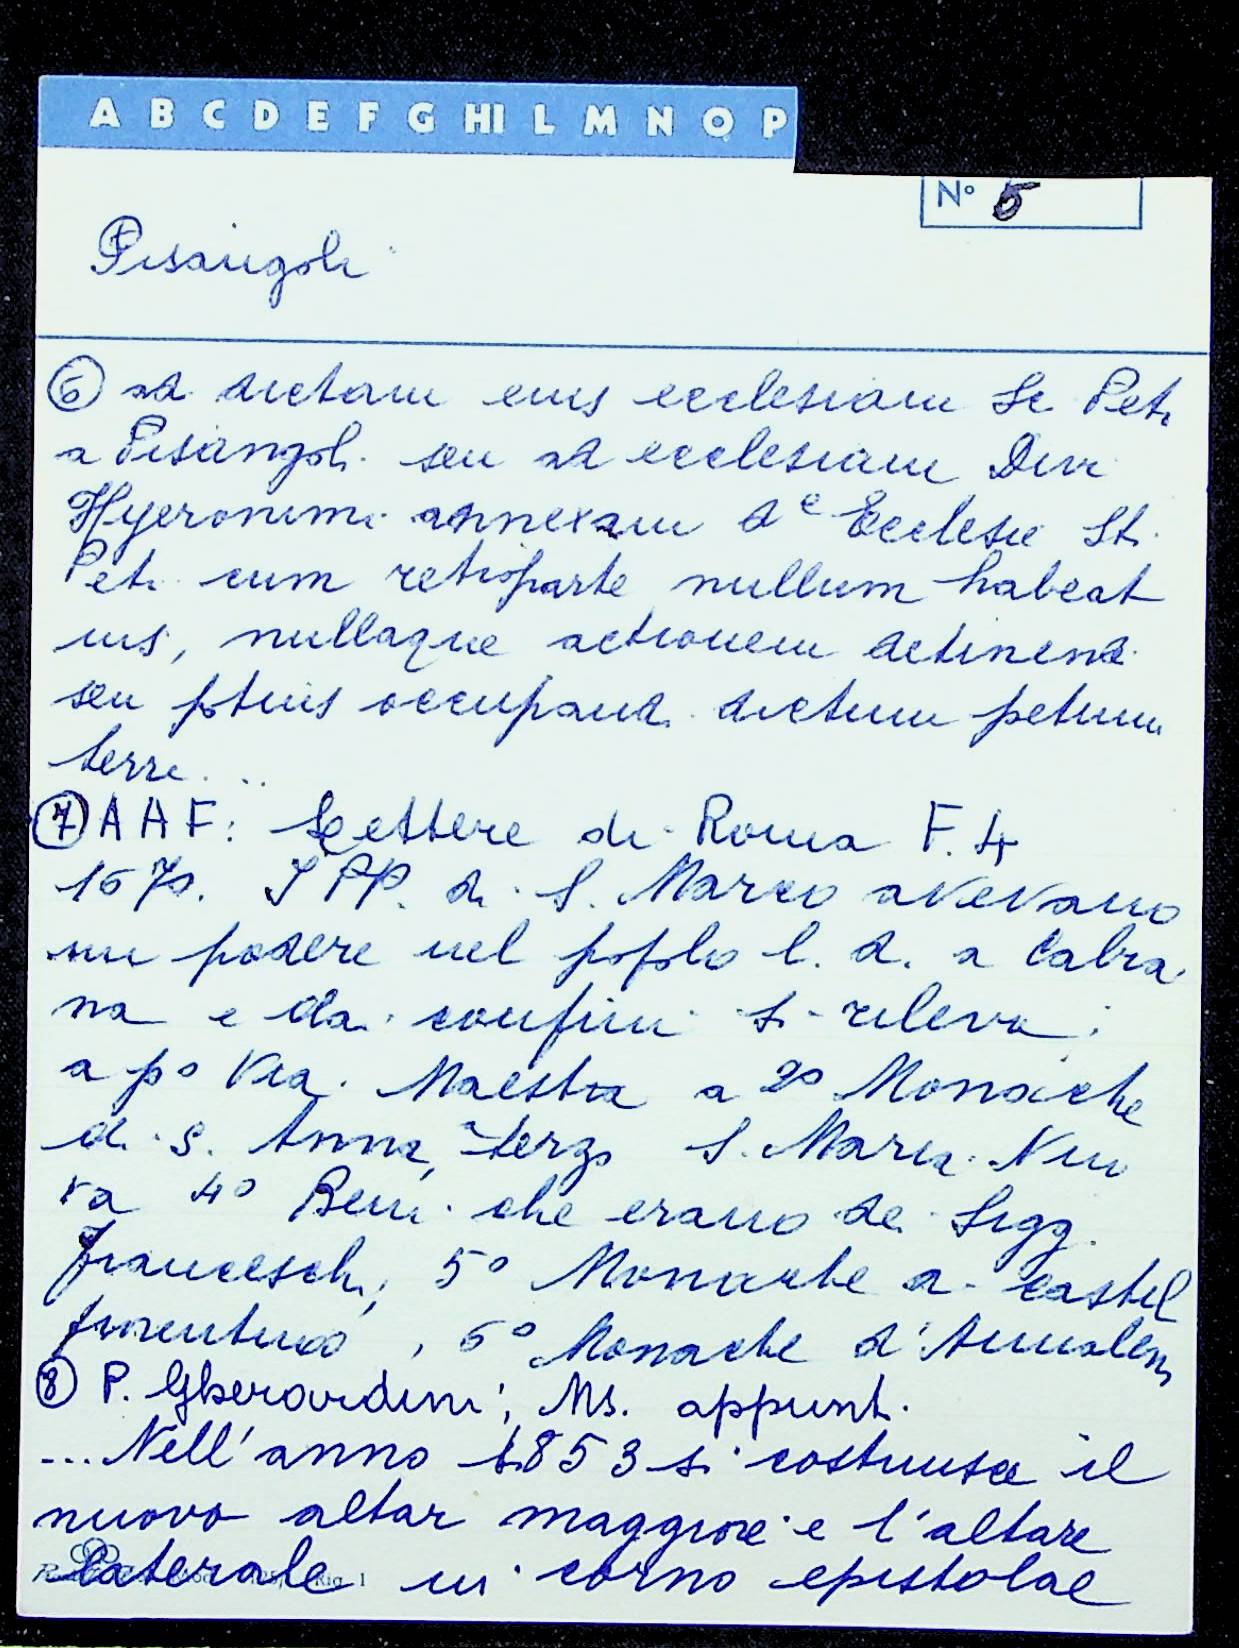 A B C D E F G HI L M N O P
N° 5
Pisangoli
⑥ ad dictam eius ecclesiam Sc. Petr
a Pisangoli seu ad ecclesiam Divi
Hyeronimi annexam de Ecclesie Sti.
Petri cum retioparte nullum habeat
ius, nullaque actionem detinend.
seu potius occupand. dictum petium
terre...
⑦ A A F: Lettere di Roma F. 4
1670. I PP. di S. Marco avevano
un podere nel popolo l. d. a Cabra
na e dai confini si rileva:
a p° Via Maestra a 2° Monache
di S. Anna, terzo S. Maria Nuo
va 4° Beni che erano dei Sigg.
Franceschi, 5° Monache a Castel
fiorentino, 6° Monache d'Annalena
⑧ P. Gherardini; Ms. appunti.
...Nell'anno 1853 si costruisce il
nuovo altar maggiore e l'altare
laterale in corno epistolae